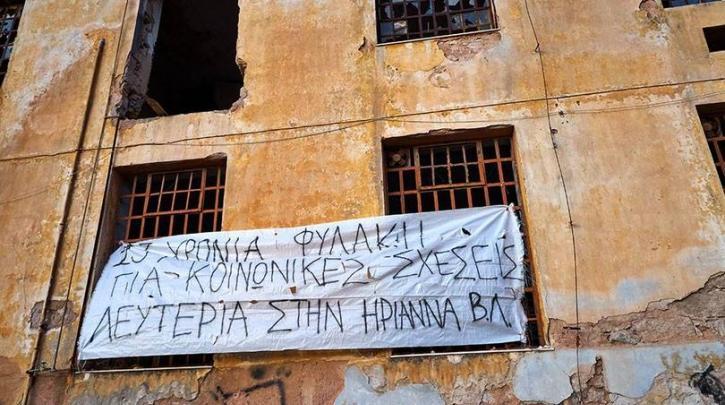 13 ΧΡΟΝΙΑ ΦΥΛΑΚΗ
ΓΙΑ ΚΟΙΝΩΝΙΚΕΣ ΣΧΕΣΕΙΣ
ΛΕΥΤΕΡΙΑ ΣΤΗΝ ΗΡΙΑΝΝΑ Β.Λ.